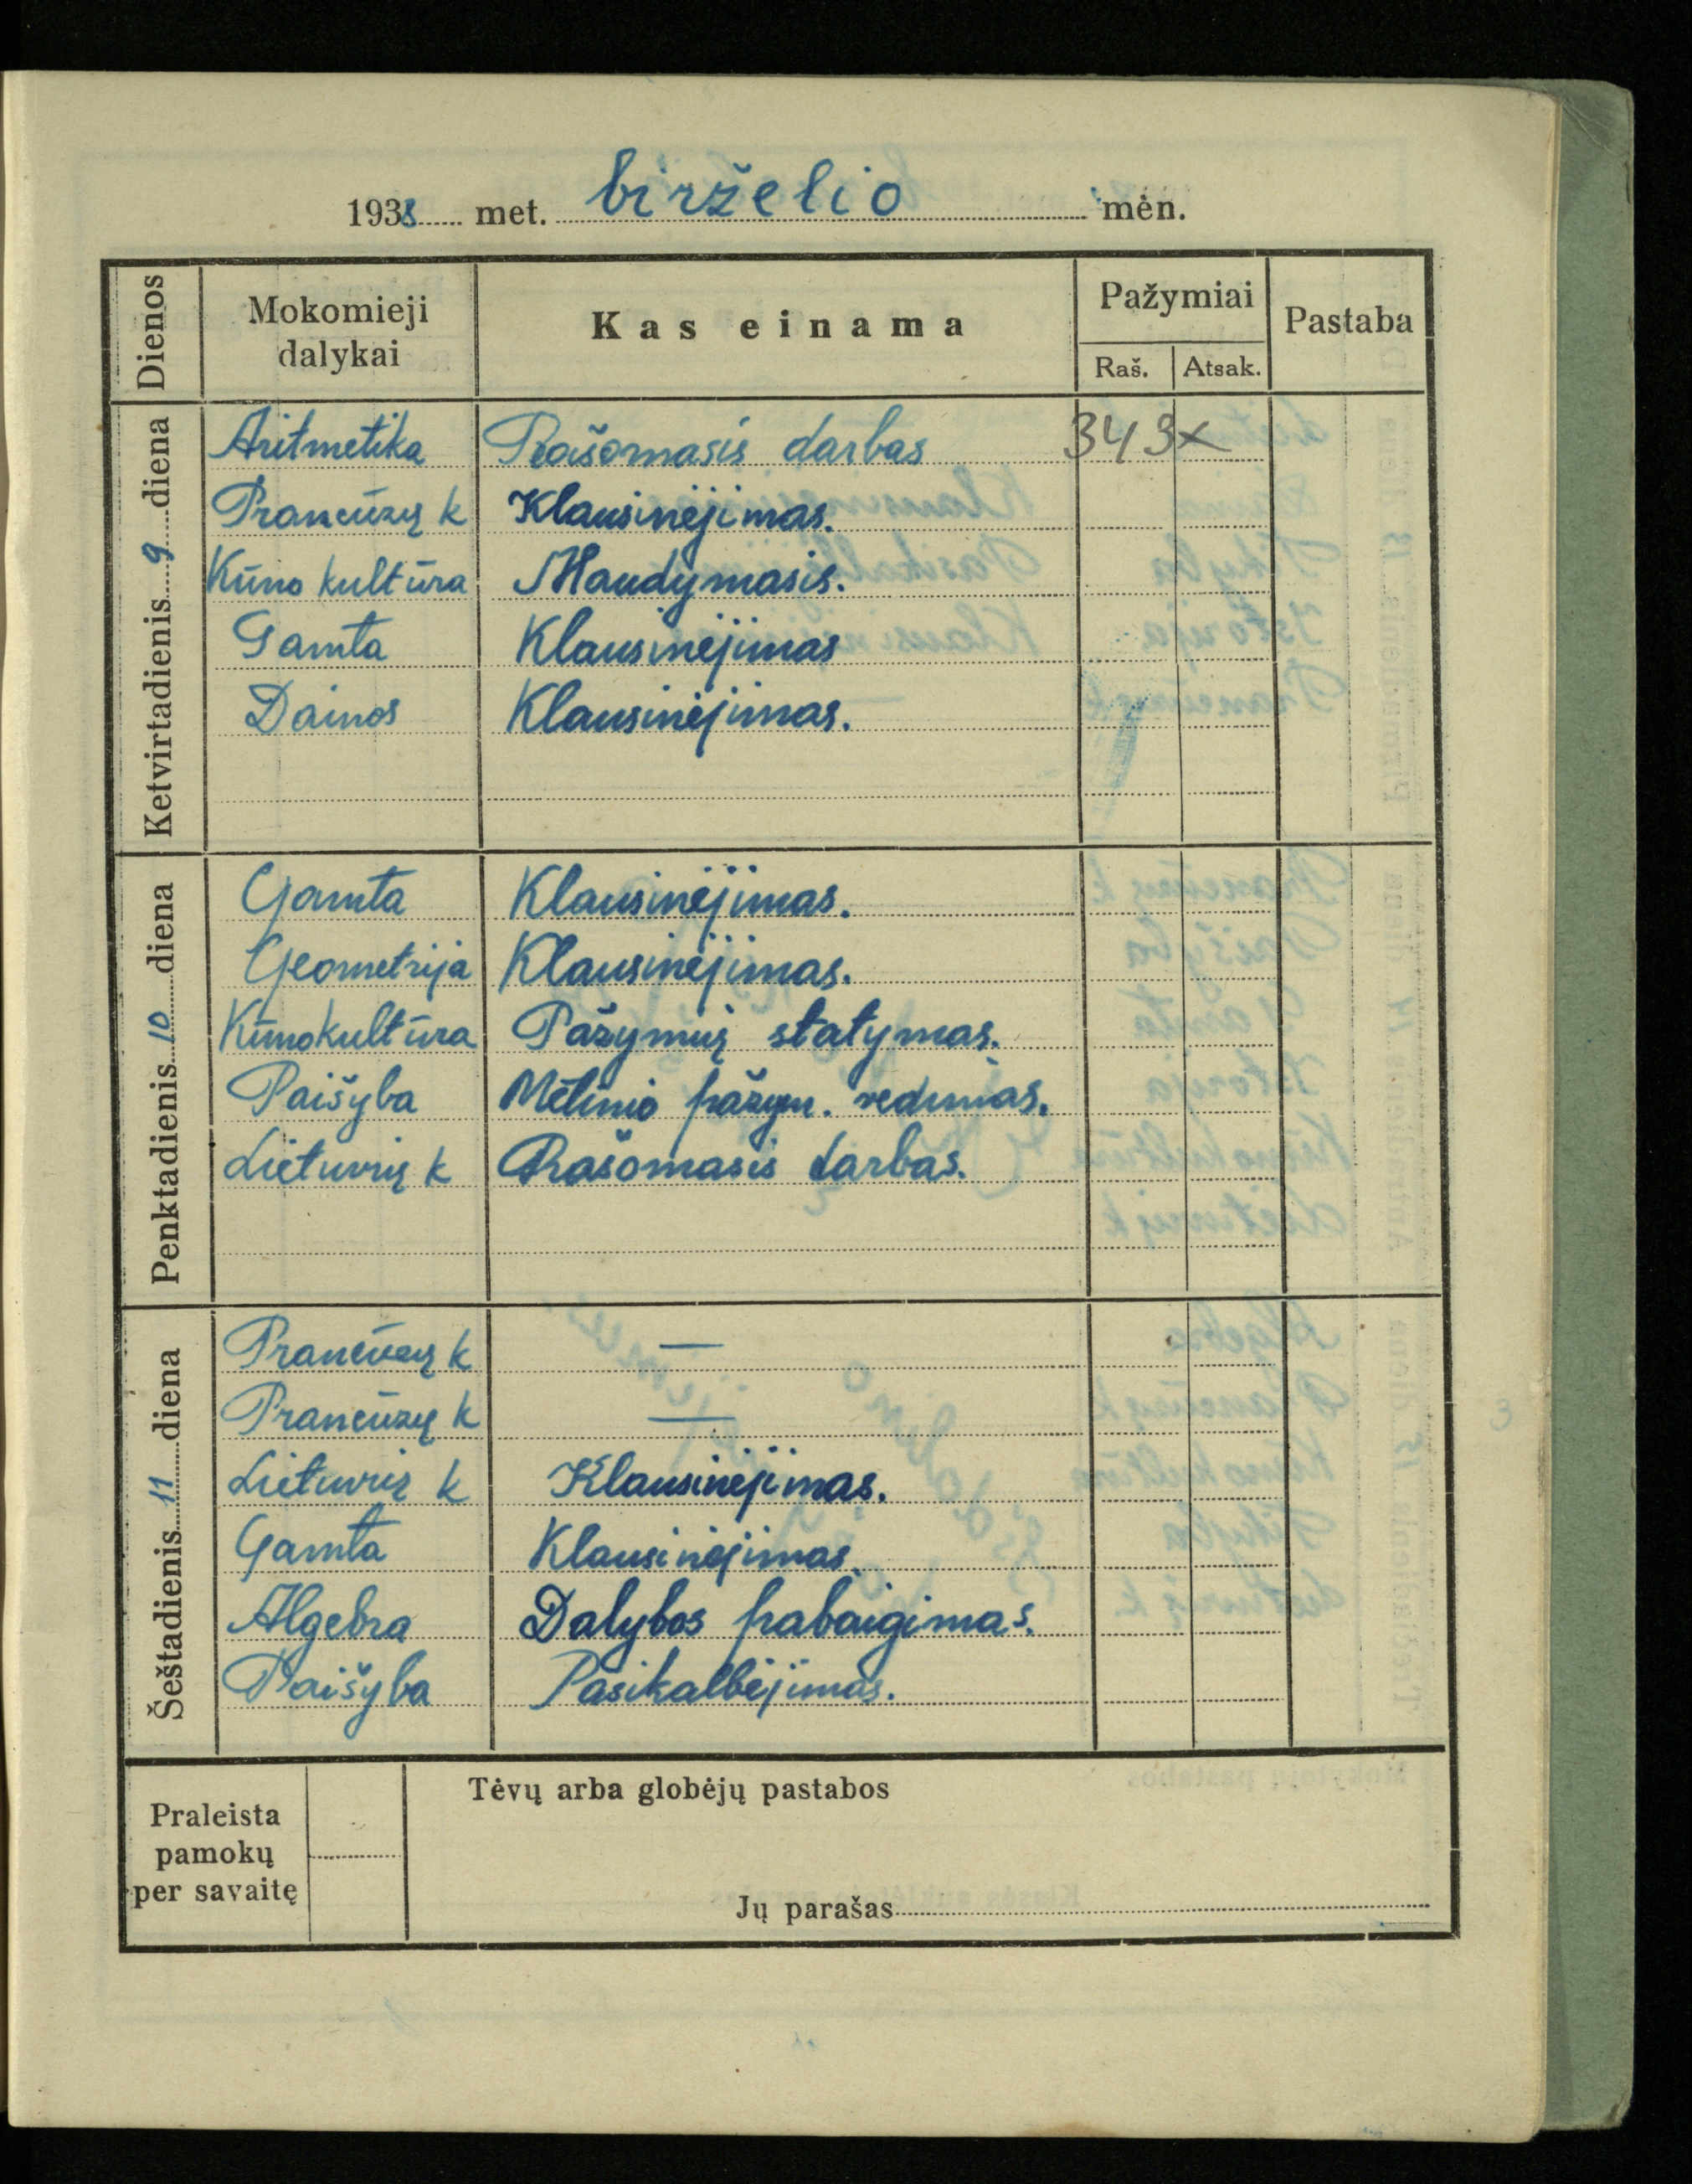 1938 met. birželio mėn.
Dienos Mokomieji dalykai Kas einama Pažymiai Pastaba
Raš. Atsak.
Ketvirtadienis 9 diena
Aritmetika Rašomasis darbas 343x
Prancūzų k Klausinėjimas.
Kūno kultūra Maudymasis.
Gamta Klausinėjimas
Dainos Klausinėjimas.
Penktadienis 10 diena
Gamta Klausinėjimas.
Geometrija Klausinėjimas.
Kūno kultūra Pažymių statymas.
Paišyba Metinio pažym. vedimas.
Lietuvių k Rašomasis darbas.
Šeštadienis 11 diena
Prancūzų k —
Prancūzų k —
Lietuvių k Klausinėjimas.
Gamta Klausinėjimas.
Algebra Dalybos pabaigimas.
Paišyba Pasikalbėjimas.
Praleista
pamokų
per savaitę
Tėvų arba globėjų pastabos
Jų parašas